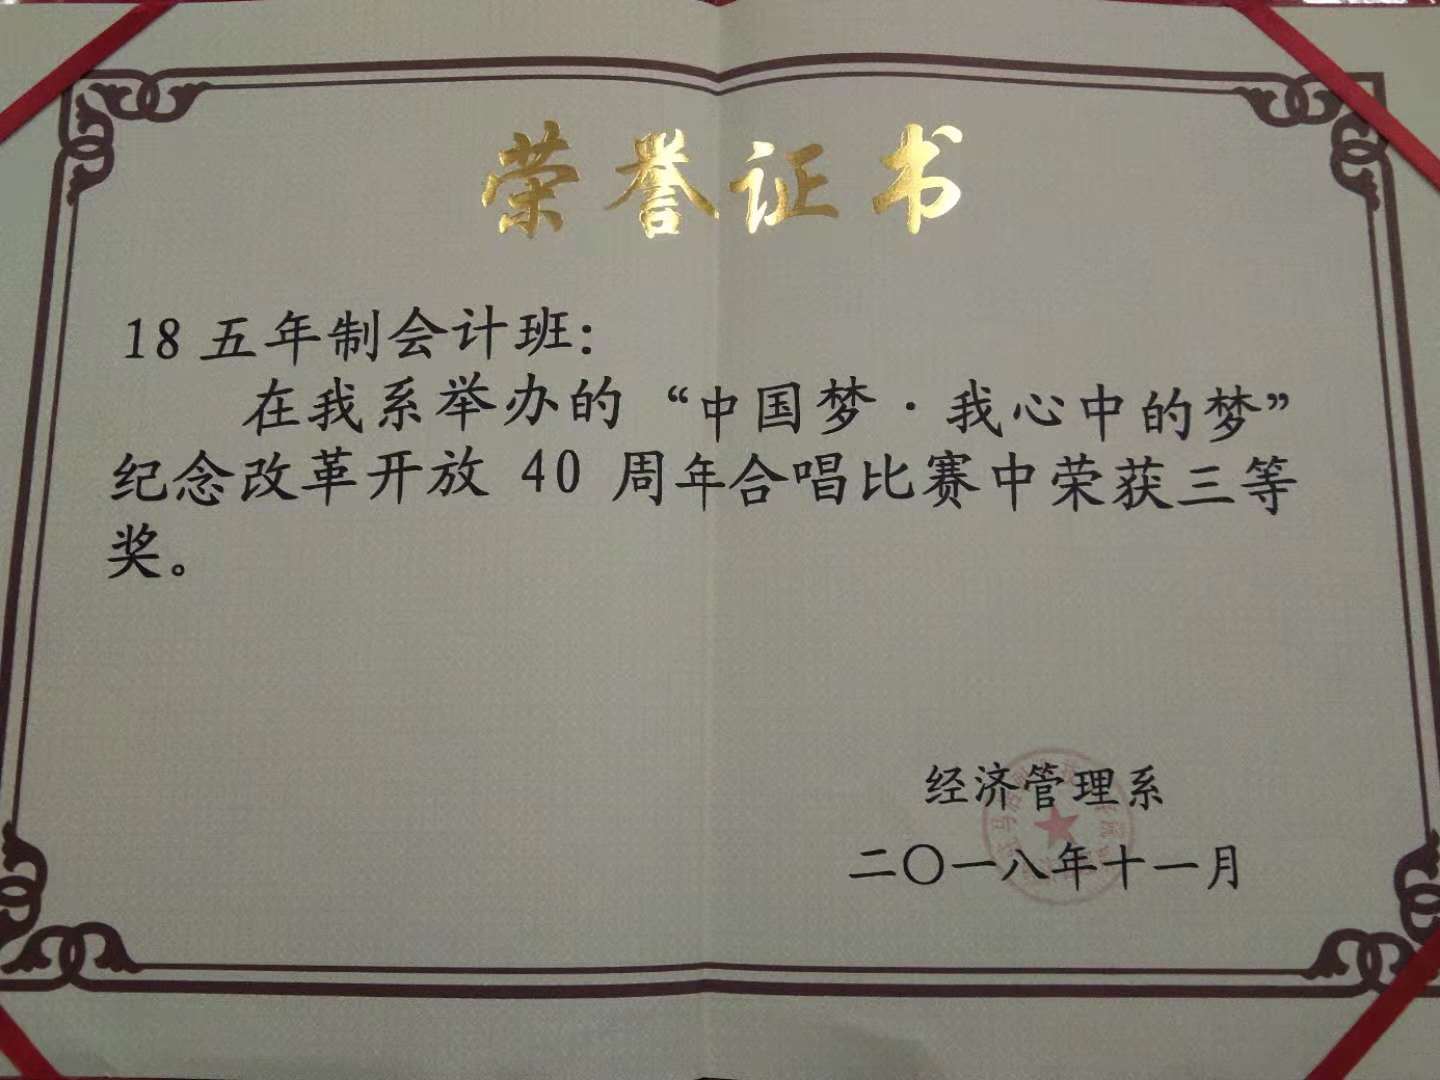 荣誉证书
18五年制会计班：
在我系举办的“中国梦·我心中的梦”
纪念改革开放 40 周年合唱比赛中荣获三等
奖。
经济管理系
二〇一八年十一月